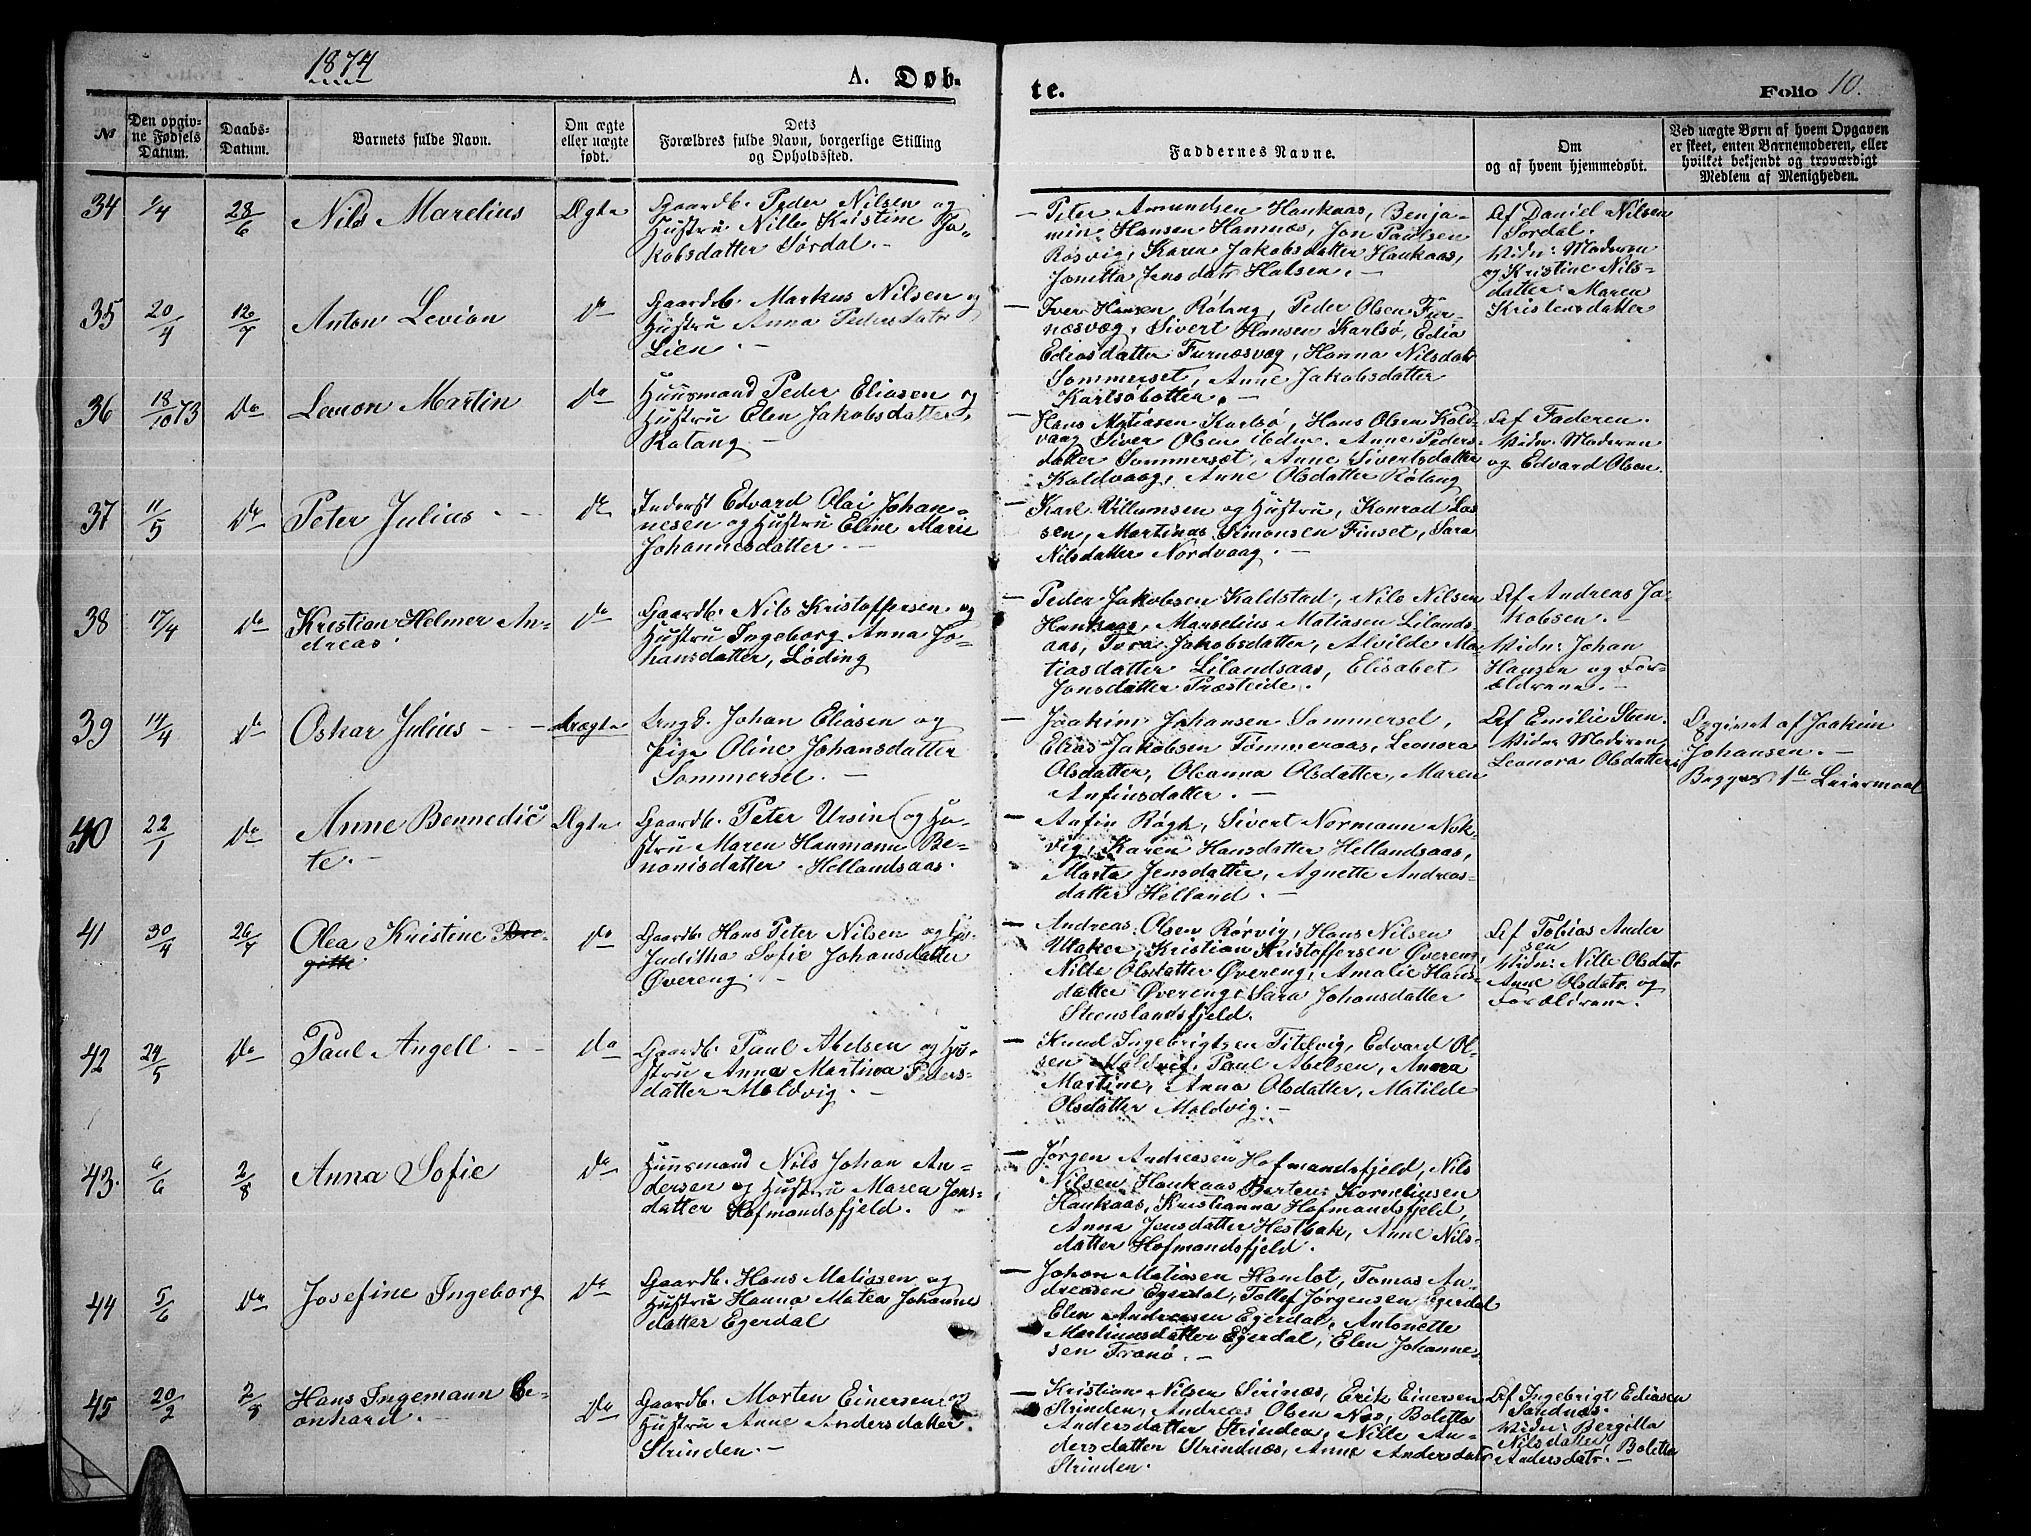 1874
A. Døb-
te.
Folio 10.
No
Den opgiv-
ne Fødsels
Datum.
Daabs-
Datum.
Barnets fulde Navn.
Om ægte
eller uægte
født.
Dets
Forældres fulde Navn, borgerlige Stilling
og Opholdssted.
Faddernes Navne.
Om
og af hvem hjemmedøbt.
Ved uægte Børn af hvem Opgaven
er skeet, enten Barnemoderen, eller
hvilket bekjendt og troværdigt
Medlem af Menigheden.
34
28/6
Nils Marelius
Ægte
Gaardb. Peder Nilsen og
Hustru Nille Kristine Ja-
kobsdatter Sørdal. -
- Peter Amundsen Haukaas, Benja-
min Hansen Hamnæs, Jon Paulsen
Røsvig, Karen Jakobsdatter Haukaas,
Jonetta Jensdatr Halsen. -
Af Daniel Nilsen
Sørdal.
Vidn: Moderen
og Kristine Nils-
datter. Maren
Kristensdatter
35
20/4
12/7
Anton Levion
Do
Gaardb. Markus Nilsen og
Hustru Anna Pedersdatr
Lien. -
- Iver Hansen Røtang, Peder Olsen Fur-
næsvæg, Sivert Hansen Karlsø, Edia
Ediasdatter Furnæsvæg, Hanna Nilsdatr
Sommerset, Anne Jakobsdatter
Karlsøbotten. -
36
18/10 73
Do
Levion Martin
Do
Huusmand Peder Eliasen og
Hustru Elen Jakobsdatter,
Røtang -
- Hans Matiasen Karlsø, Hans Olsen Kald-
vaag Siver Olsen ibdm. Anne Peders-
datter Sommerset, Anne Sivertsdatter
Kaldvaag, Anne Olsdatter Røtang
Af Faderen.
Vidn: Moderen
og Edvard Olsen.
37
11/5
Do
Peter Julius - -
Do
Inderst Edvard Olai Johan-
nesen og Hustru Eline Marie
Johannesdatter. -
- Karl Villumsen og Hustru, Konrad Las-
sen, Martinus Simonsen Finset, Sara
Nilsdatter Nordvaag. -
38
17/4
Do
Kristian Helmer An-
dreas.
Do
Gaardb. Nils Kristoffersen og
Hustru Ingeborg Anna Jo-
hansdatter, Løding
- Peder Jakobsen Kaldstad, Nils Nilsen
Haukaas, Marselius Matiasen Lilands-
aas, Tora Jakobsdatter, Alvilde Ma-
tiasdatter Lilandsaas, Elisabet
Jonsdatter Præsteide.
Af Andreas Ja-
kobsen. -
Vidn: Johan
Hansen og For-
ældrene. -
39
14/4
Do
Oskar Julius - -
Uægte
Ungk. Johan Eliasen og
Pige Oline Johansdatter
Sommersel. -
- Joakim Johansen Sommersel,
Elias Jakobsen Tømmeraas, Leonora
Olsdatter, Oleanna Olsdatter, Maren
Anfinsdatter. -
Af Emilie Sten.
Vidn: Moderen,
Leonora Olsdatter
Opgivet af Joakim
Johansen. -
Begges 1ste Leiermaal
40
22/1
Do
Anne Bennedic-
te. -
Ægte
Gaardb. Peter Ursin og Hu-
stru Maren Haumann Be-
nonisdatter Hellandsaas.
- Anfin Røgh, Sivert Normann Nok-
vig, Karen Hansdatter Hellandsaas,
Marta Jensdatter, Agnette Andreas-
datter Helland. -
41
30/4
26/7
Olea Kristine Bir-
gitte.
Do
Gaardb. Hans Peter Nilsen og Hu.
Juditha Sofie Johansdatter
Øvereng. -
- Andreas Olsen Rørvig, Hans Nilsen
Uttaker, Kristian Kristoffersen Øvereng,
Nille Olsdatter Øvereng, Amalie Hans-
datter Øvereng, Sara Johansdatter
Steenslandsfjeld.
Af Tobias Ander
sen
Vidn: Nille Olsdatr
Anne Olsdatr. og
Forældrene.
42
24/5
Do
Paul Angell - -
Do
Gaardb. Paul Abelsen og Hu-
stru Anna Martina Peders-
datter Moldvig. -
- Knud Ingebrigtsen Titelvig, Edvard Ol-
sen Moldvig, Paul Abelsen, Anna
Martine, Anna Olsdatter, Matilde
Olsdatter Moldvig. -
43.
6/6
2/8
Anna Sofie
Do
Huusmand Nils Johan An-
dersen og Hustru Marea Jons-
datter Hofmandsfjeld.
- Jørgen Andreasen Hofmandsfjeld, Nils
Nilsen Haukaas Kornelinsen
Haukaas, Kristianna Hofmandsfjeld,
Anna Jensdatter Hestbak, Anne Nils-
datter Hofmandsfjeld.
44
5/6
Do
Josefine Ingeborg
Do
Gaardb. Hans Matiasen og
Hustru Hanna Matea Johanne
datter Egerdal
- Johan Matiasen Hambot, Tomas An-
dreasen Egerdal, Tollef Jørgensen Egerdal
Elen Andreasen Egerdal, Antonette
Martinusdatter Egerdal, Elen Johanne-
sen Tranø. -
45
20/2
2/8
Hans Ingemann Le-
onhard. -
Do
Gaardb. Morten Einersen og
Hustru Anne Andersdatter
Strinden. -
- Kristian Nilsen Sirinæs, Erik Einersen
Strinden, Andreas Olsen Næs, Boletta
Andersdatter Strinden, Nille An-
dersdatter Strindnæs, Anne Andersdatr
Strinden.
Af Ingebrigt Ediasen
Sandnæs.
Vidn: Bergitta
Nilsdatter, Boletta
Andersdatr. -